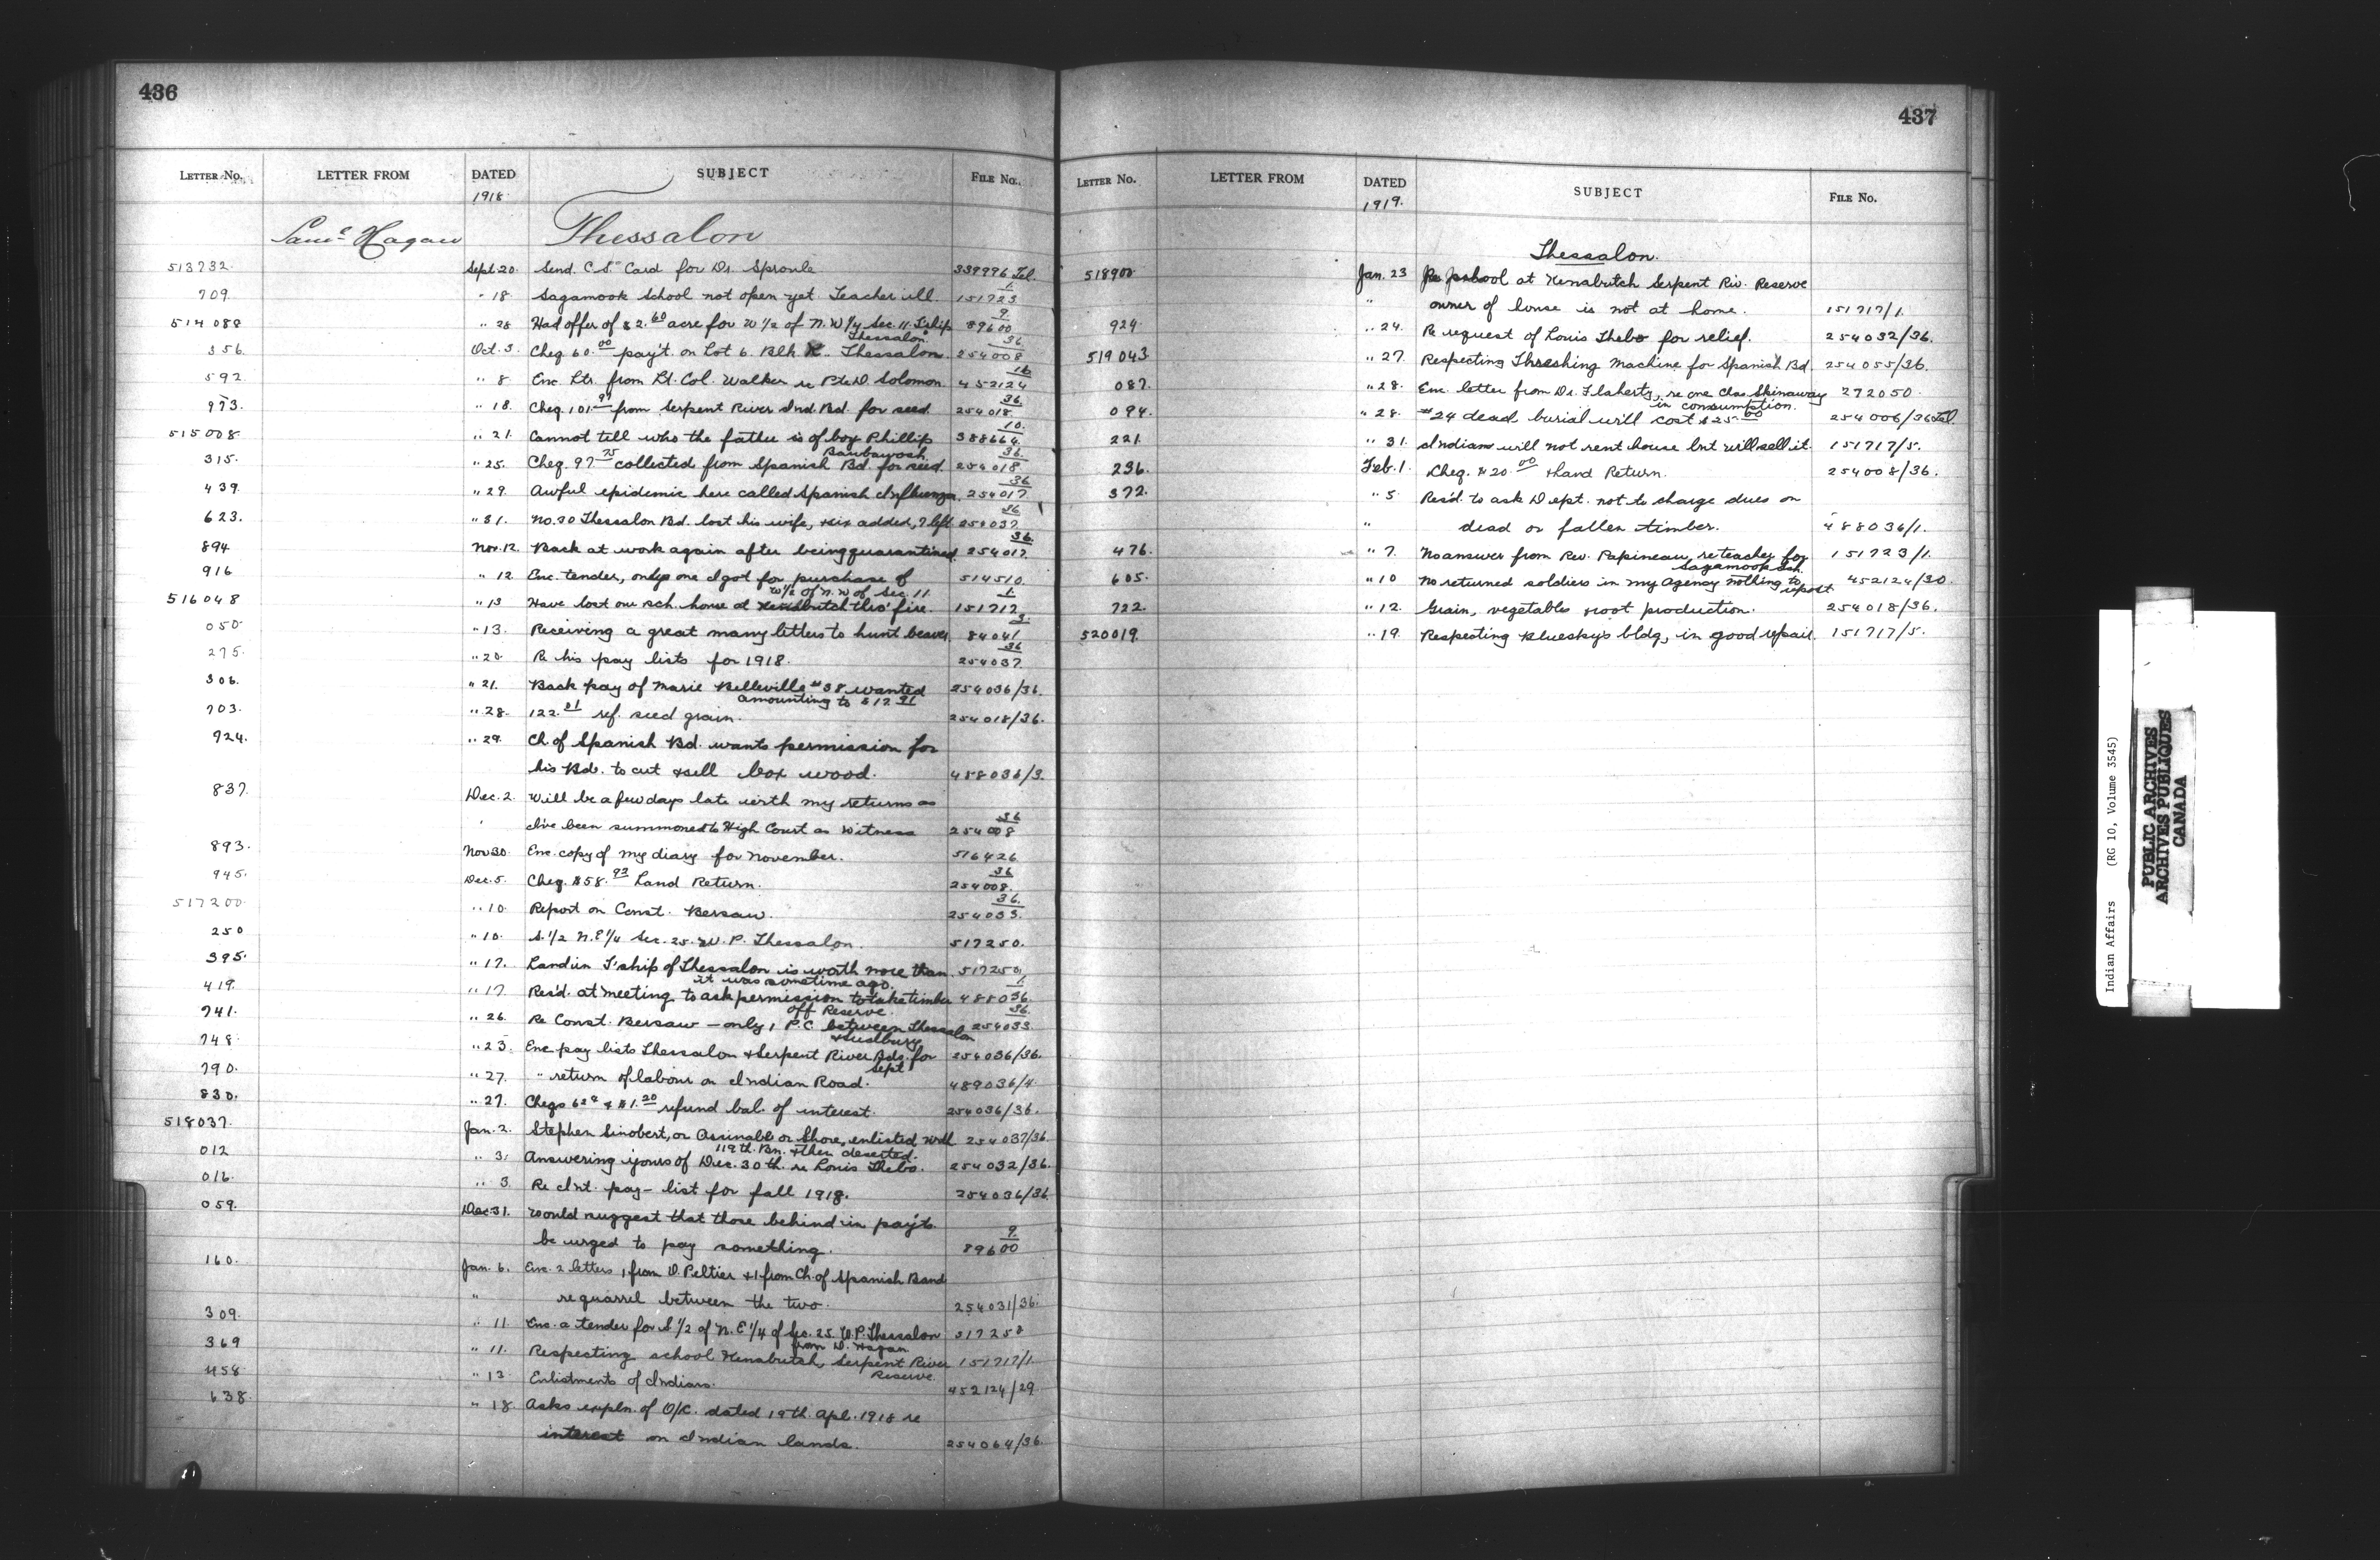 436
LETTER NO. LETTER FROM DATED SUBJECT FILE NO.
1918
Saml Hagan Thessalon
513732. Sept 20. Send C.S. Card for Dr. Sproule 339996 Tel.
709. " 18. Sagamook School not open yet. Teacher ill. 151723/1
514088 " 28 Had offer of $2.60 acre for W 1/2 of N.W 1/4 Sec. 11. T'ship Thessalon 89600/9
356. Oct. 3. Cheq 60.00 pay't. on Lot 6. Blk K. Thessalon. 254008/36
592. " 8 Enc. Ltr. from Lt. Col. Walker re Pte D. Solomon. 452124/16
973. " 18. Cheq. 101.97 from Serpent River Ind. Bd. for seed 254018/36
515008. " 21. Cannot tell who the father is of boy Phillip 388664/10
315. " 25. Cheq. 97.75 collected from Spanish Bd. for seed 254018/36
439. " 29. Awful epidemic here called Spanish Influenza. 254017/36
623. " 31. No. 30 Thessalon Bd. lost his wife, & six added, 7 left 254037/36
894 Nov. 12. Back at work again after being quarantined. 254017/36
916 " 12 Enc. tender, only one I got for purchase of W 1/2 of N.W of Sec. 11 514510.
516048 " 13 Have lost our sch. house at Kenabutch thro' fire. 151717/1
050 " 13. Receiving a great many letters to hunt beaver. 84041/3
275. " 20. Re his pay lists for 1918. 254037/36
306. " 21. Back pay of Marie Belleville #38 wanted
amounting to $12.91 254036/36.
703. " 28. 122.81 ref. seed grain. 254018/36.
724. " 29. Ch. of Spanish Bd. wants permission for
his Bd. to cut & sell box wood. 488036/3.
837. Dec. 2. Will be a few days late with my returns as
I've been summoned to High Court as Witness 254008/36
893. Nov 30. Enc. copy of my diary for November. 516426
945. Dec. 5. Cheq. $58.93 Land Return. 254008/36
517200. " 10. Report on Const. Bersaw. 254033/36
250 " 10. S. 1/2 N.E 1/4 Sec. 25. W. P. Thessalon. 517250.
395. " 17. Land in T'ship of Thessalon is worth more than
it was sometime ago. 517250
419. " 17. Res'd. at meeting to ask permission to take timber
off Reserve. 488036/1
741. " 26. Re Const. Bersaw — only 1 P.C. between Thessalon
& Sudbury. 254033/36
748. " 23. Enc pay lists Thessalon & Serpent River Bds. for
Sept 254036/36.
790. " 27. " return of labour on Indian Road. 489036/4.
830. " 27. Cheqs & $1.20 refund bal. of interest. 254036/36.
518037. Jan. 2. Stephen Sinobert, or Assinable or Shore, enlisted with
119th. Bn. & then deserted. 254037/36.
012 " 3. Answering yours of Dec. 30th. re Louis Thebo. 254032/36.
016. " 3 Re Int. pay-list for fall 1918. 254036/36.
059. Dec 31. Would suggest that those behind in pay'ts
be urged to pay something. 89600/9
160. Jan. 6. Enc. 2 letters, 1 from D. Peltier & 1 from Ch. of Spanish Band
" re quarrel between the two. 254031/36.
309. " 11 Enc. a tender for S 1/2 of N.E 1/4 of Sec. 25. W.P. Thessalon
from D. Hagan. 517250
369 " 11. Respecting school Kenabutch, Serpent River
Reserve. 151717/1.
458 " 13. Enlistments of Indians. 452124/29.
638. " 18 Asks expln. of O/C. dated 19th. Apl. 1918 re
interest on Indian lands. 254064/36.
437
LETTER NO. LETTER FROM DATED SUBJECT FILE NO.
1919.
Thessalon.
518900 Jan. 23 Re school at Kenabutch Serpent Riv. Reserve
" owner of house is not at home. 151717/1.
924. " 24. Re request of Louis Thebo for relief. 254032/36.
519043 " 27. Respecting Threshing Machine for Spanish Bd. 254055/36.
087. " 28. Enc. letter from Dr. Flaherty, re one Chas Skinaway
in consumption. 272050.
094. " 28. #24 dead burial will cost $25.00 254006/36 Tel.
221. " 31. Indian will not rent house but will sell it. 151717/5.
236. Feb. 1. Cheq. $20.00 & Land Return. 254008/36.
372. " 5 Res'd. to ask Dept. not to charge dues on
" dead or fallen timber. 488036/1.
476. " 7. No answer from Rev. Papineau, re teacher for
Sagamook Sch. 151723/1.
605. " 10 No returned soldiers in my agency nothing to
report 452124/30.
722. " 12. Grain, vegetables & root production. 254018/36.
520019. " 19. Respecting Bluesky's bldg, in good repair. 151717/5.
Indian Affairs (RG 10, Volume 3545)
PUBLIC ARCHIVES
ARCHIVES PUBLIQUES
CANADA